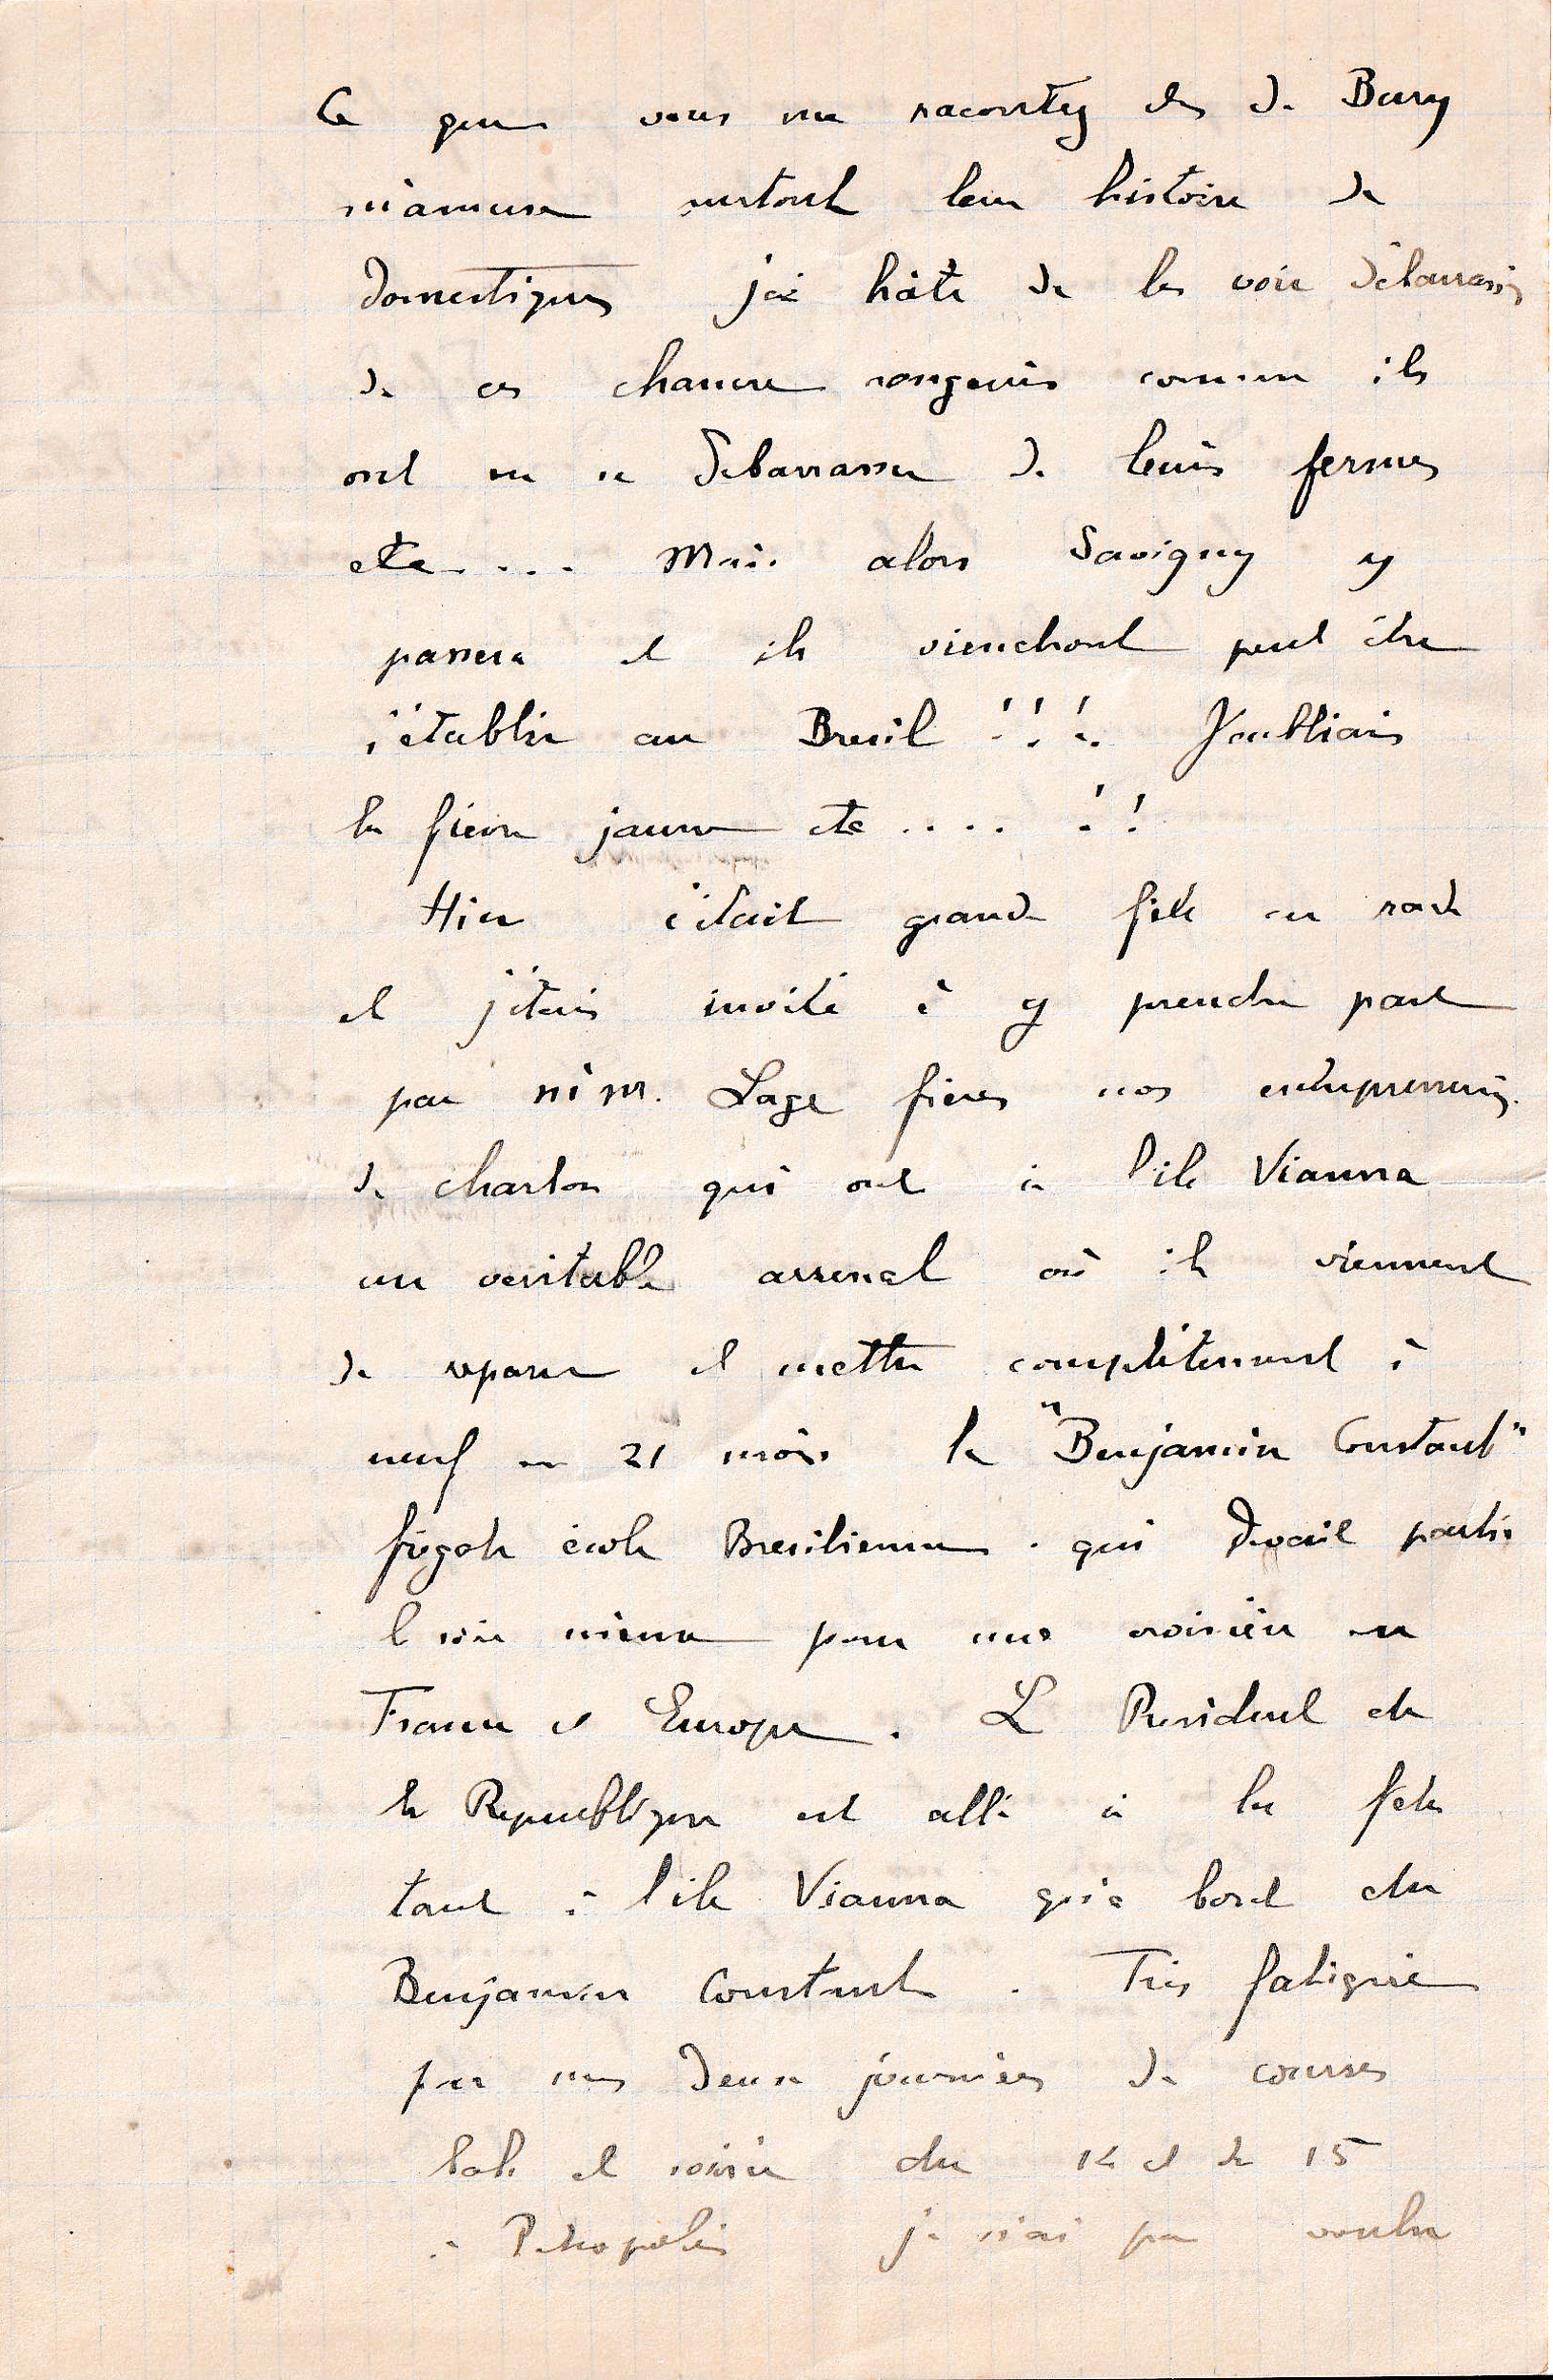 Ce que vous me racontez des de Bary
m'amuse surtout leur histoire de
domestiques j'ai hâte de les voir débarrassés
de ces chancre rongeurs comme ils
ont su se débarrasser de leurs fermes
etc.... Mais alors Savigny y
passera et ils viendront peut être
s'établir au Bresil !!! J'oubliais
la fievre jaune etc .... !!
Hier c'était grande fête en rade
et j'étais invité à y prendre part
par MM. Lage freres nos entrepreneurs
de charbon qui ont à l'ile Vianna
un veritable arsenal où ils viennent
de reparer et mettre complètement à
neuf en 21 mois le "Benjamin Constant"
frégate école Bresilienne. qui devait partir
le soir même pour une croisière en
France et Europe. Le President de
la Republique est allé à la fête
tant à l'ile Vianna qu'à bord du
Benjamin Constant. Très fatigué
par mes deux journées de courses
bals et soirée du 14 et de 15
à Petropolis je n'ai pas voulu